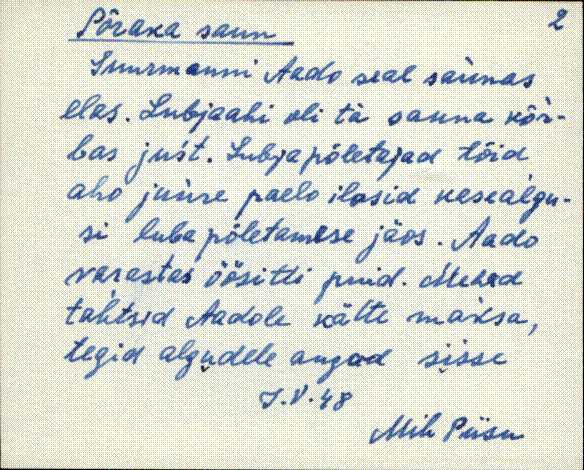 2
Põraka saun
Suurmanni Aado seal saunas
elas. Lubjaahi oli tä sauna kõr-
bas just. Lubjapõletajad tõid
aho juure paelo ilosid kasealgu-
si luba põletamese jäos. Aado
varastas öösitti puid. Mehed
tahtsid Aadole kätte maksa,
tegid algudele augad sisse
I.V.48
Mih Piisu